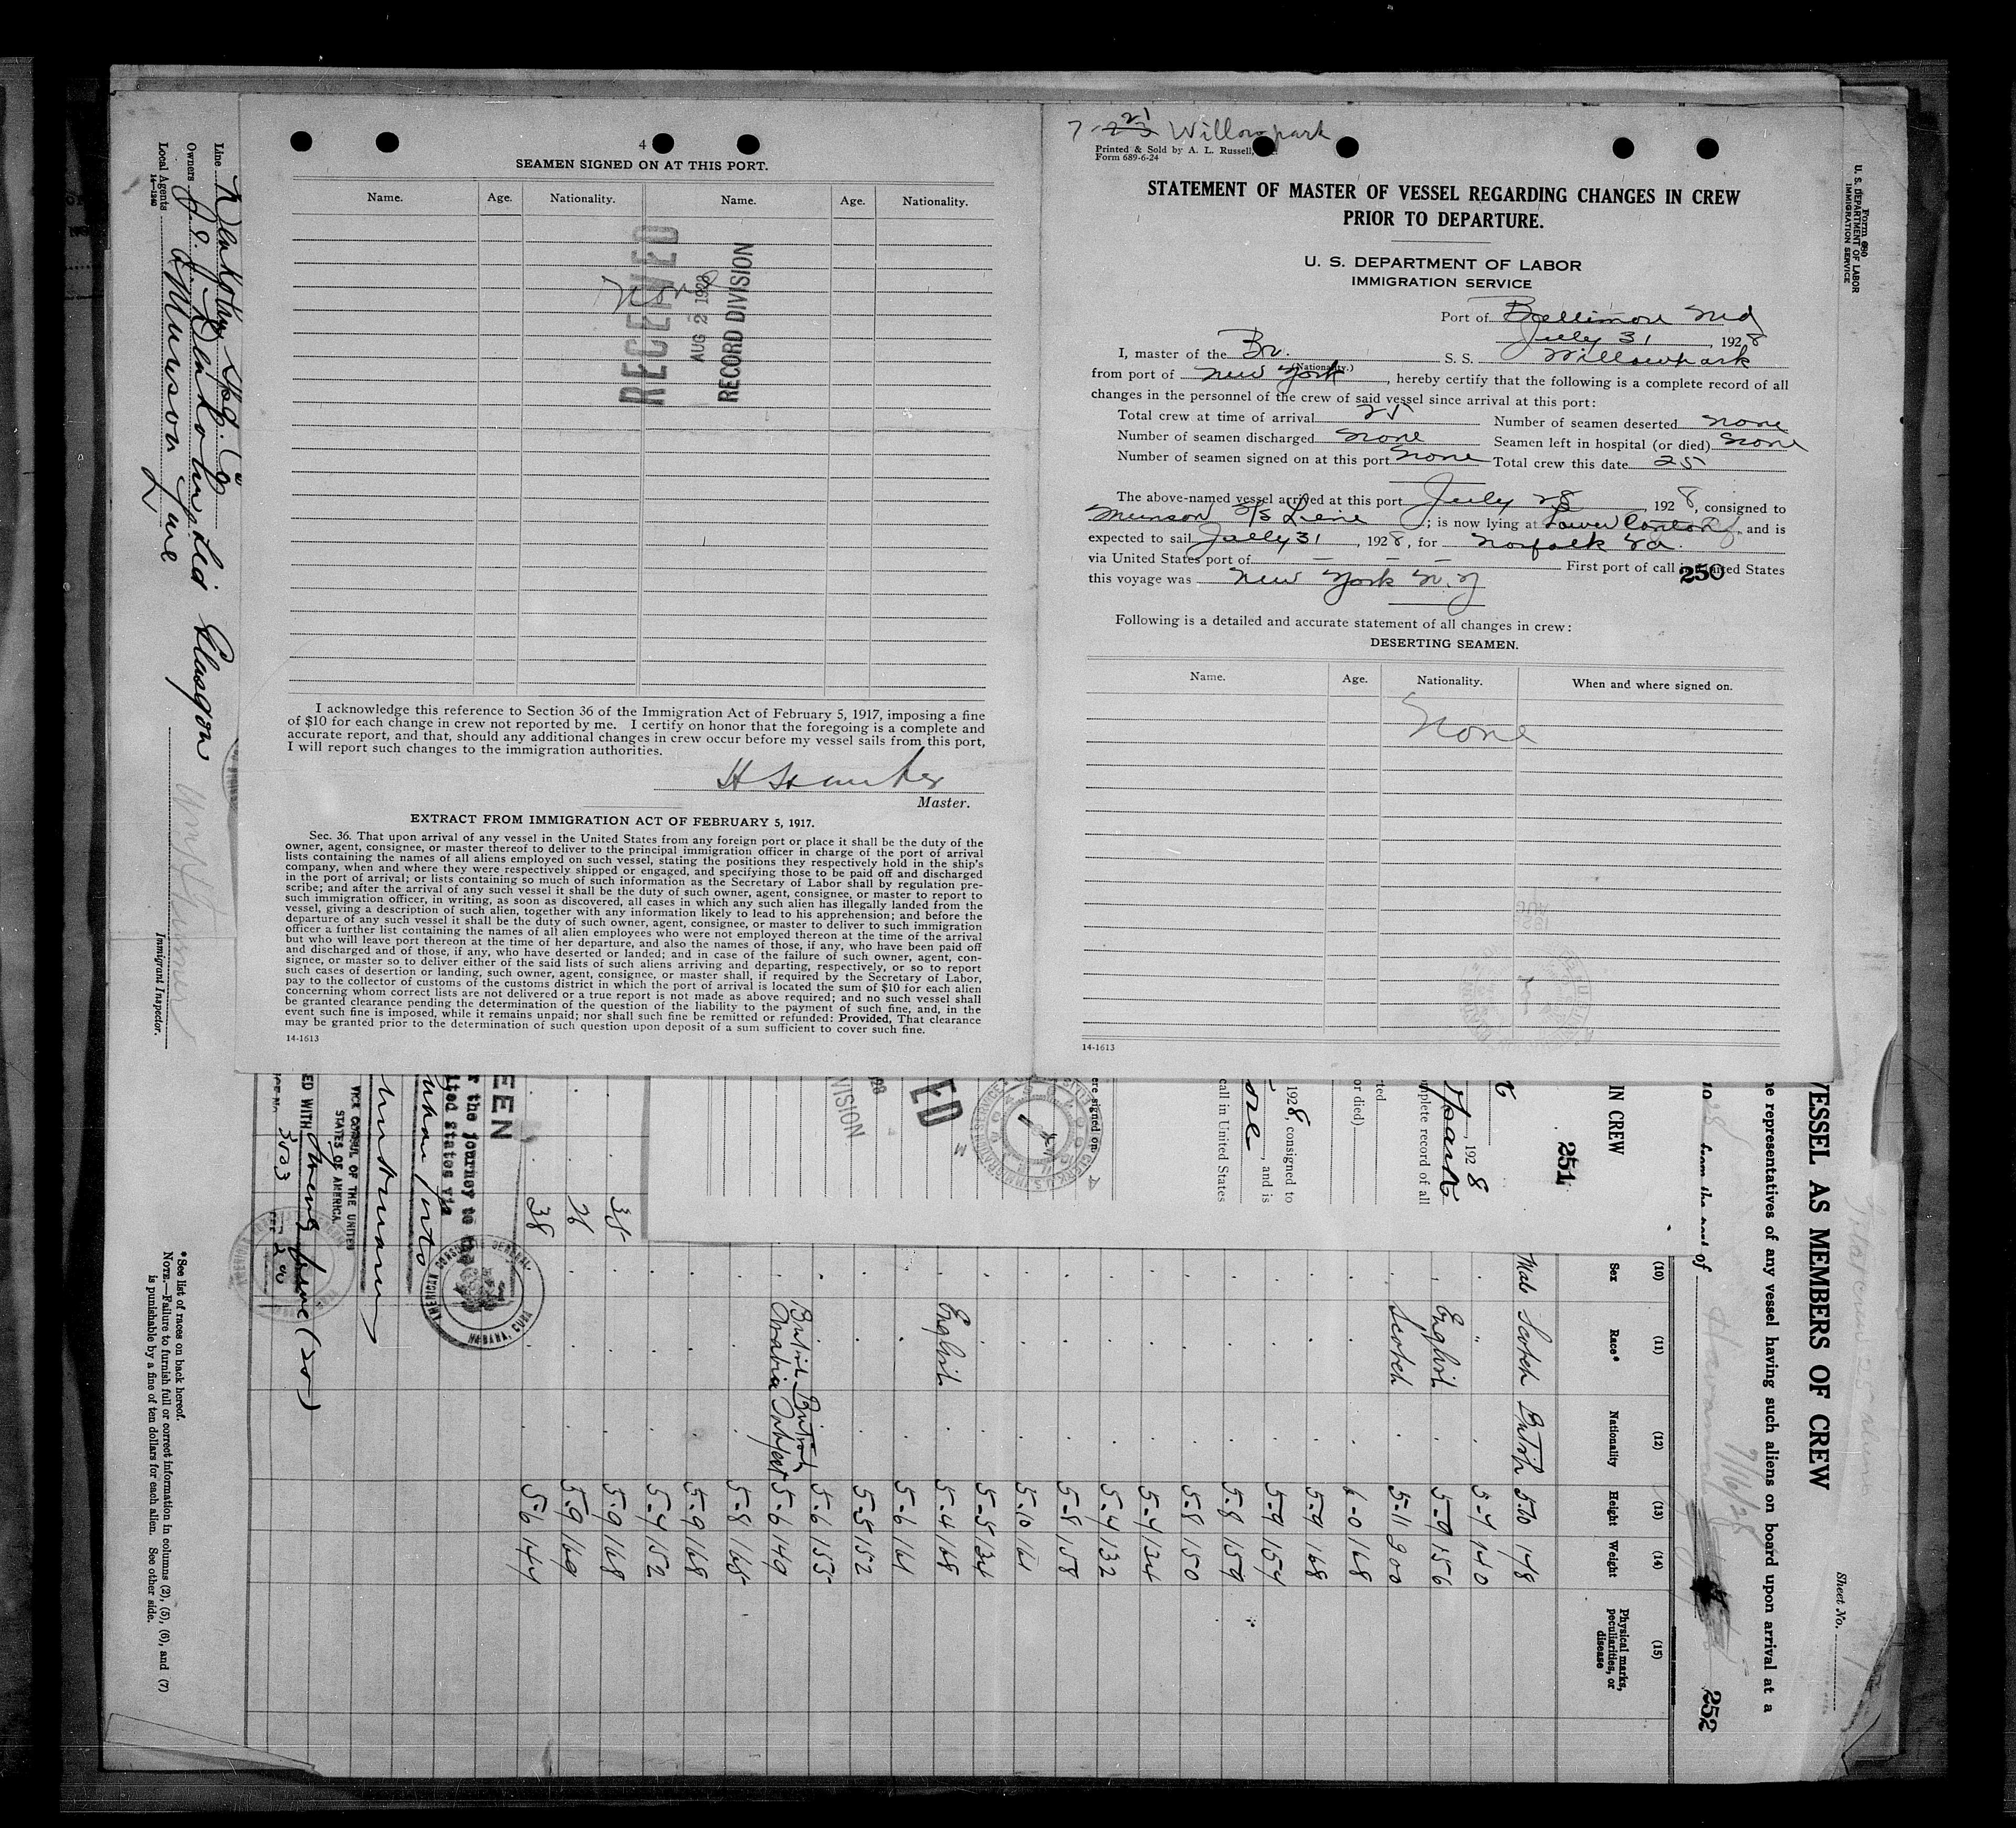 4
SEAMEN SIGNED ON AT THIS PORT.
Name. Age. Nationality. Name. Age. Nationality.
None
RECEIVED
AUG 2 1928
RECORD DIVISION
I acknowledge this reference to Section 36 of the Immigration Act of February 5, 1917, imposing a fine
of $10 for each change in crew not reported by me. I certify on honor that the foregoing is a complete and
accurate report, and that, should any additional changes in crew occur before my vessel sails from this port,
I will report such changes to the immigration authorities.
Master.
EXTRACT FROM IMMIGRATION ACT OF FEBRUARY 5, 1917.
Sec. 36. That upon arrival of any vessel in the United States from any foreign port or place it shall be the duty of the
owner, agent, consignee, or master thereof to deliver to the principal immigration officer in charge of the port of arrival
lists containing the names of all aliens employed on such vessel, stating the positions they respectively hold in the ship's
company, when and where they were respectively shipped or engaged, and specifying those to be paid off and discharged
in the port of arrival; or lists containing so much of such information as the Secretary of Labor shall by regulation pre-
scribe; and after the arrival of any such vessel it shall be the duty of such owner, agent, consignee, or master to report to
such immigration officer, in writing, as soon as discovered, all cases in which any such alien has illegally landed from the
vessel, giving a description of such alien, together with any information likely to lead to his apprehension; and before the
departure of any such vessel it shall be the duty of such owner, agent, consignee, or master to deliver to such immigration
officer a further list containing the names of all alien employees who were not employed thereon at the time of the arrival
but who will leave port thereon at the time of her departure, and also the names of those, if any, who have been paid off
and discharged and of those, if any, who have deserted or landed; and in case of the failure of such owner, agent, con-
signee, or master so to deliver either of the said lists of such aliens arriving and departing, respectively, or so to report
such cases of desertion or landing, such owner, agent, consignee, or master shall, if required by the Secretary of Labor,
pay to the collector of customs of the customs district in which the port of arrival is located the sum of $10 for each alien
concerning whom correct lists are not delivered or a true report is not made as above required; and no such vessel shall
be granted clearance pending the determination of the question of the liability to the payment of such fine, and, in the
event such fine is imposed, while it remains unpaid; nor shall such fine be remitted or refunded: Provided, That clearance
may be granted prior to the determination of such question upon deposit of a sum sufficient to cover such fine.
14-1613
Willowpark
Printed & Sold by A. L. Russell,
Form 689-6-24
STATEMENT OF MASTER OF VESSEL REGARDING CHANGES IN CREW
PRIOR TO DEPARTURE.
U. S. DEPARTMENT OF LABOR
IMMIGRATION SERVICE
Port of Baltimore Md
July 31, 1928
I, master of the Br. S. S. Willowpark
(Nationality.)
from port of New York, hereby certify that the following is a complete record of all
changes in the personnel of the crew of said vessel since arrival at this port:
Total crew at time of arrival 25 Number of seamen deserted none
Number of seamen discharged none Seamen left in hospital (or died) none
Number of seamen signed on at this port none Total crew this date 25
The above-named vessel arrived at this port July 28, 1928, consigned to
Munson S/S Line; is now lying at Lower Canton, and is
expected to sail July 31, 1928, for Norfolk Va.
via United States port of First port of call in United States
250
this voyage was New York N. Y
Following is a detailed and accurate statement of all changes in crew:
DESERTING SEAMEN.
Name. Age. Nationality. When and where signed on.
None
14-1613
Form 680
U. S. DEPARTMENT OF LABOR
IMMIGRATION SERVICE
Line
Owners
Local Agents Munson Line
14-1240
Glasgow
Immigrant Inspector.
VESSEL AS MEMBERS OF CREW
Sheet No.
representatives of any vessel having such aliens on board upon arrival at a
from the port of
7/16/28
252
(10) (11) (12) (13) (14) (15)
Sex Race* Nationality Height Weight Physical marks, peculiarities, or disease
Male Scotch British 5-10 148
" 5-7 140
English 5-9 156
Scotch 5-11 200
6-0 168
5-9 168
5-9 154
5-8 159
5-8 150
5-4 134
5-4 132
5-8 158
5-10 161
5-5 134
English 5-4 168
5-6 161
5-5 152
5-6 155
5-6 149
5-8 165
5-9 168
5-4 152
35 5-9 168
26 5-9 169
38 5-6 144
IN CREW
251
1928
mplete record of all
or died)
1928, consigned to
, and is
call in United States
ere signed on
VISION
the journey to the
ited States via
VICE CONSUL OF THE UNITED
STATES OF AMERICA
AMERICAN CONSULATE GENERAL
HABANA, CUBA
*See list of races on back hereof.
NOTE.—Failure to furnish full or correct information in columns (2), (5), (6), and (7)
is punishable by a fine of ten dollars for each alien. See other side.